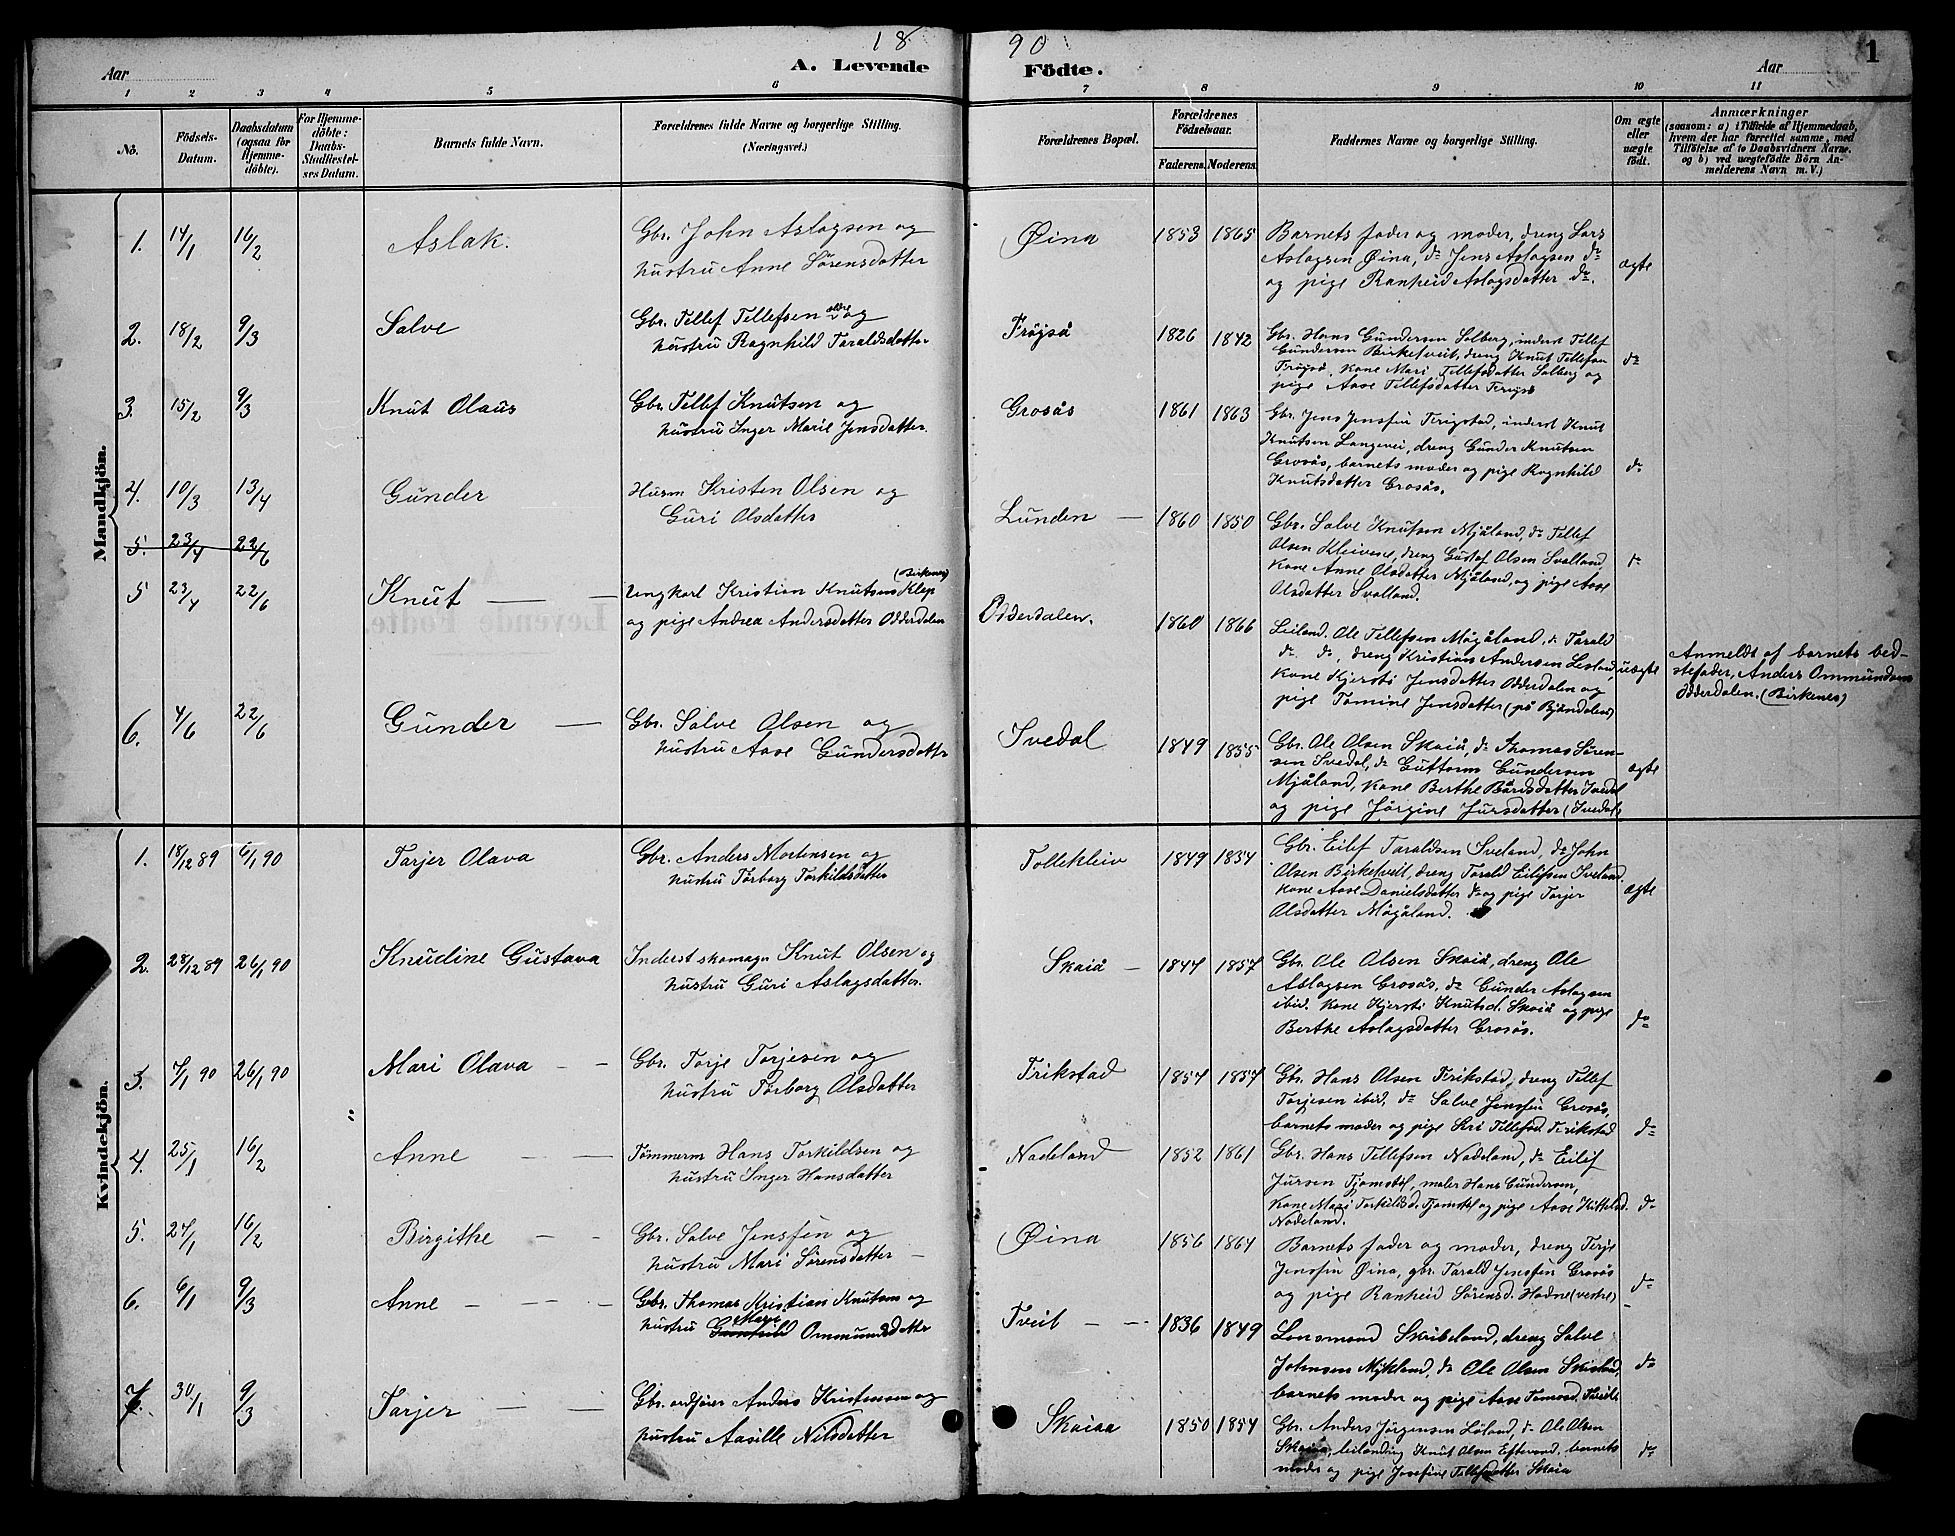 18 90
1
Aar A. Levende Födte. Aar
1 2 3 4 5 6 7 8 9 10 11
No.
Födsels-
Datum.
Daabsdatum
(ogsaa for
Hjemme-
döbte).
For Hjemme-
döbte:
Daabs-
Stadfæstel-
ses Datum.
Barnets fulde Navn.
Forældrenes fulde Navne og borgerlige Stilling.
(Næringsvei.)
Forældrenes Bopæl.
Forældrenes
Födselsaar.
Faderens. Moderens.
Faddernes Navne og borgerlige Stilling.
Om ægte
eller
uægte
födt.
Anmærkninger
(saasom: a) i Tilfælde af Hjemmedaab,
hvem der har forrettet samme, med
Tilföielse af to Daabsvidners Navne,
og b) ved uægtefödte Börn An-
melderens Navn m. V.)
Mandkjön.
1. 14/1 16/2 Aslak. Gbr. John Aslagsen og
hustru Anne Sørensdatter
Øina 1853 1865 Barnets fader og moder, dreng Lars
Aslagsen Øina, do Jens Aslagsen do
og pige Ranheid Aslagsdatter do.
ægte
2. 18/2 9/3 Salve Gbr. Tellef Tellefsen og
hustru Ragnhild Taraldsdatter
Frøjså 1826 1842 Gbr. Hans Gundersen Solberg, inderst Tellef
Gundersen Birketveit, dreng Knut Tellefsen
kone Mari Tellefsdatter Solberg og
pige Aase Tellefsdatter
do
3. 15/2 9/3 Knut Olaus Gbr. Tellef Knutsen og
hustru Inger Marie Jensdatter.
Grosås 1861 1863 Gbr. Jens Jenssen inderst Knut
Knutsen Langevei, dreng Gunder Knutsen
Grosås, barnets moder og pige Ragnhild
Knutsdatter Grosås.
do
4. 10/3 13/4 Gunder Husm Kristen Olsen og
Guri Olsdatter
Lunden — 1860 1850 Gbr. Salve Knutsen Mjåland, do Tellef
Olsen dreng Gustaf Olsen Svalland,
kone Anne Olsdatter Mjåland, og pige Aase
Olsdatter Svalland.
do
5. 23/4 22/6
5 23/4 22/6 Knut — — Ungkarl Kristian Knutsen Klep (Birkenes)
og pige Andrea Andersdatter Odderdalen
Odderdalen. 1860 1866 Leiland. Ole Tellefsen Møgåland, do Tarald
do. do, dreng Kristian Andersen
kone Kjersti Jensdatter Odderdalen og
pige Tomine Jensdatter (på Bjøndalen)
uægte
Anmeldt af barnets bed-
stefader, Anders Ommundsen
Odderdalen. (Birkenes)
6. 4/6 22/6 Gunder — Gbr. Salve Olsen og
hustru Aase Gundersdatter
Ivedal 1849 1855 Gbr. Ole Olsen Skaiå, do Thomas Søren-
sen Ivedal, do Guttorm Gundersen
Mjåland, kone Berthe Bårdsdatter Ivedal
og pige Jørgine Jursdatter (Ivedal)
ægte
Kvindekjön.
1. 18/12 89 6/1 90 Tarjer Olava Gbr. Anders Mortensen og
hustru Torborg Torkildsdatter
Tollekleiv 1849 1854 Gbr. Eilef Taraldsen Iveland, do John
Olsen Birketveit, dreng Tarald Eilefsen Iveland,
kone Aase Danielsdatter do og pige Tarjer
Olsdatter Møgåland.
ægte
2. 28/12 89 26/1 90 Knudine Gustava Inderst skomagr Knut Olsen og
hustru Guri Aslagsdatter.
Skaiå — 1844 1857 Gbr. Ole Olsen Skaiå, dreng Ole
Aslagsen Grosås, do Gunder Aslagsen
ibid. kone Kjersti Knutsd. Skaiå og pige
Berthe Aslagsdatter Grosås.
do
3. 7/1 90 26/1 90 Mari Olava — — Gbr. Torje Torjesen og
hustru Torborg Olsdatter
Frikstad 1854 1857 Gbr. Hans Olsen Frikstad, dreng Tellef
Torjesen ibid. do Salve Jenssen Grosås,
barnets moder og pige Siri Tellefsd. Frikstad
do
4. 25/1 16/2 Anne — — Tømmerm Hans Torkildsen og
hustru Inger Hansdatter
Nodeland 1852 1861 Gbr. Hans Tellefsen Nodeland, do Eilif
Jursen Tjomstøl, maler Hans Gundersen,
kone Mari Torkildsd. Tjomstøl og pige Aase
Nodeland.
do
5. 27/1 16/2 Birgithe — — Gbr. Salve Jenssen og
hustru Mari Sørensdatter —
Øina 1856 1864 Barnets fader og moder, dreng Terje
Jenssen Øina, gbr. Tarald Jenssen Grosås
og pige Ranheid Sørensd. Hodne (vestre)
do
6. 6/1 9/3 Anne — — — Gbr. Thomas Kristian Knutsen og
hustru Marie Ommundsdatter
Tveit — — 1836 1849 Lensmand Skaiseland, dreng Salve
Johnsen Mykland, do Ole Olsen
barnets moder og pige Aase Tomasd. Tveite
do
7. 30/1 9/3 Tarjer — — Gbr. ordfører Anders Kristensen og
hustru Aasille Nilsdatter
Skaiaa 1850 1854 Gbr. Anders Jørgensen do Ole Olsen
Skaiaa, leilænding Knut Olsen barnets
moder og pige Josefine Tellefsdatter Skaia
do